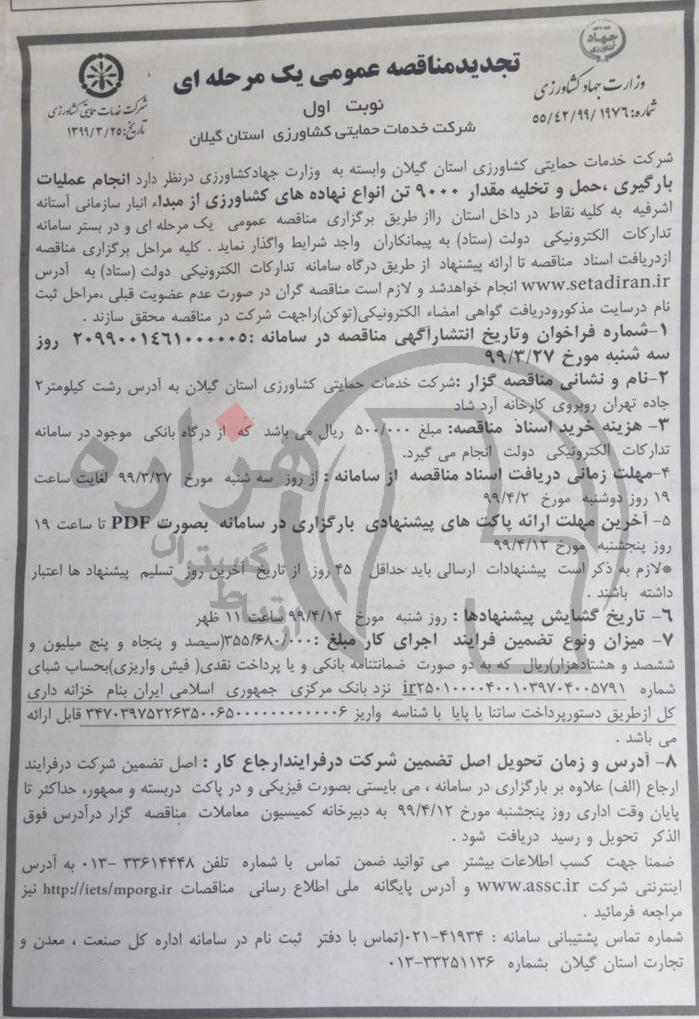 جهاد کشاورزی
وزارت جهاد کشاورزی
شماره: ۵۵/۴۲/۹۹/۱۹۷۶
تجدیدمناقصه عمومی یک مرحله ای
نوبت اول
شرکت خدمات حمایتی کشاورزی استان گیلان
شرکت خدمات حمایتی کشاورزی
تاریخ: ۱۳۹۹/۳/۲۵
شرکت خدمات حمایتی کشاورزی استان گیلان وابسته به وزارت جهادکشاورزی درنظر دارد انجام عملیات
بارگیری ،حمل و تخلیه مقدار ۹۰۰۰ تن انواع نهاده های کشاورزی از مبداء انبار سازمانی آستانه
اشرفیه به کلیه نقاط در داخل استان رااز طریق برگزاری مناقصه عمومی یک مرحله ای و در بستر سامانه
تدارکات الکترونیکی دولت (ستاد) به پیمانکاران واجد شرایط واگذار نماید . کلیه مراحل برگزاری مناقصه
ازدریافت اسناد مناقصه تا ارائه پیشنهاد از طریق درگاه سامانه تدارکات الکترونیکی دولت (ستاد) به آدرس
www.setadiran.ir انجام خواهدشد و لازم است مناقصه گران در صورت عدم عضویت قبلی ،مراحل ثبت
نام درسایت مذکورودریافت گواهی امضاء الکترونیکی(توکن)راجهت شرکت در مناقصه محقق سازند .
۱-شماره فراخوان وتاریخ انتشارآگهی مناقصه در سامانه :۲۰۹۹۰۰۱۴۶۱۰۰۰۰۰۵ روز
سه شنبه مورخ ۹۹/۳/۲۷
۲-نام و نشانی مناقصه گزار :شرکت خدمات حمایتی کشاورزی استان گیلان به آدرس رشت کیلومتر۲
جاده تهران روبروی کارخانه آرد شاد
۳- هزینه خرید اسناد مناقصه: مبلغ ۵۰۰/۰۰۰ ریال می باشد که از درگاه بانکی موجود در سامانه
تدارکات الکترونیکی دولت انجام می گیرد.
۴-مهلت زمانی دریافت اسناد مناقصه از سامانه : از روز سه شنبه مورخ ۹۹/۳/۲۷ لغایت ساعت
۱۹ روز دوشنبه مورخ ۹۹/۴/۲
۵- آخرین مهلت ارائه پاکت های پیشنهادی بارگزاری در سامانه بصورت PDF تا ساعت ۱۹
روز پنجشنبه مورخ ۹۹/۴/۱۲
*لازم به ذکر است پیشنهادات ارسالی باید حداقل ۴۵ روز از تاریخ آخرین روز تسلیم پیشنهاد ها اعتبار
داشته باشند .
۶- تاریخ گشایش پیشنهادها : روز شنبه مورخ ۹۹/۴/۱۴ ساعت ۱۱ ظهر
۷- میزان ونوع تضمین فرایند اجرای کار مبلغ :۳۵۵/۶۸۰/۰۰۰(سیصد و پنجاه و پنج میلیون و
ششصد و هشتادهزار)ریال که به دو صورت ضمانتنامه بانکی و یا پرداخت نقدی( فیش واریزی)بحساب شبای
شماره ir۲۵۰۱۰۰۰۰۴۰۰۱۰۳۹۷۰۴۰۰۵۷۹۱ نزد بانک مرکزی جمهوری اسلامی ایران بنام خزانه داری
کل ازطریق دستورپرداخت ساتنا یا پایا با شناسه واریز ۳۴۷۰۳۹۷۵۲۲۶۳۵۰۰۶۵۰۰۰۰۰۰۰۰۰۰۰۰۶ قابل ارائه
می باشد .
۸- آدرس و زمان تحویل اصل تضمین شرکت درفرایندارجاع کار : اصل تضمین شرکت درفرایند
ارجاع (الف) علاوه بر بارگزاری در سامانه ، می بایستی بصورت فیزیکی و در پاکت دربسته و ممهور، حداکثر تا
پایان وقت اداری روز پنجشنبه مورخ ۹۹/۴/۱۲ به دبیرخانه کمیسیون معاملات مناقصه گزار درآدرس فوق
الذکر تحویل و رسید دریافت شود .
ضمنا جهت کسب اطلاعات بیشتر می توانید ضمن تماس با شماره تلفن ۳۳۶۱۴۴۴۸ -۰۱۳ به آدرس
اینترنتی شرکت www.assc.ir و آدرس پایگانه ملی اطلاع رسانی مناقصات http://iets/mporg.ir نیز
مراجعه فرمائید .
شماره تماس پشتیبانی سامانه : ۴۱۹۳۴-۰۲۱(تماس با دفتر ثبت نام در سامانه اداره کل صنعت ، معدن و
تجارت استان گیلان بشماره ۳۳۲۵۱۱۳۶-۰۱۳
هزاره
گستران
ارتباط